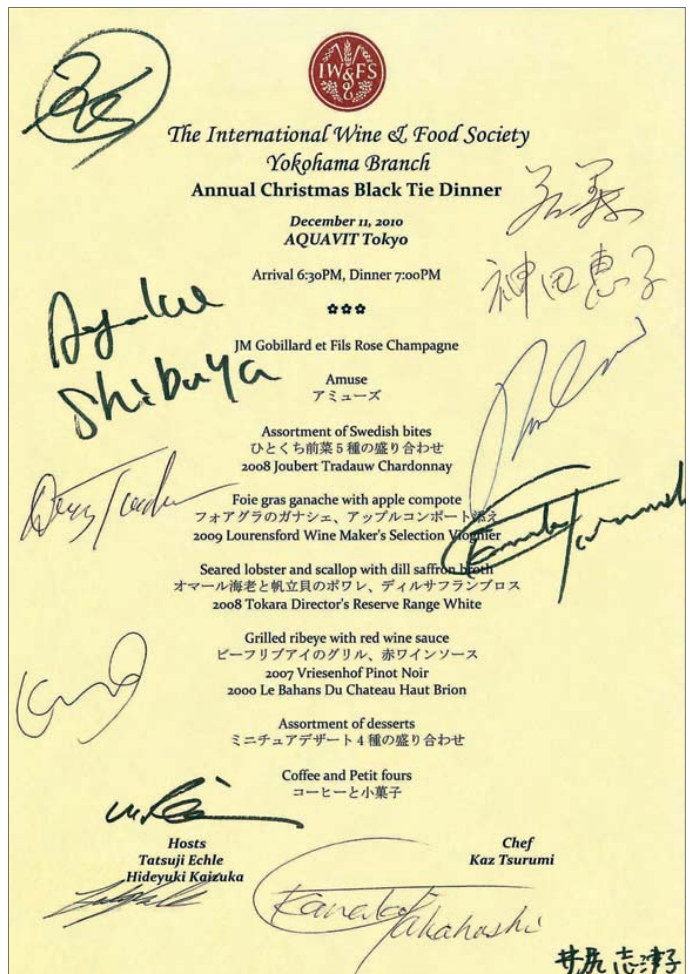 IW&FS
The International Wine & Food Society
Yokohama Branch
Annual Christmas Black Tie Dinner
December 11, 2010
AQUAVIT Tokyo
神田恵子
Arrival 6:30PM, Dinner 7:00PM
Shibuya
JM Gobillard et Fils Rose Champagne
Amuse
アミューズ
Assortment of Swedish bites
ひとくち前菜5種の盛り合わせ
2008 Joubert Tradauw Chardonnay
Foie gras ganache with apple compote
フォアグラのガナシェ、アップルコンポート添え
2009 Lourensford Wine Maker's Selection Viognier
Seared lobster and scallop with dill saffron broth
オマール海老と帆立貝のポワレ、ディルサフランブロス
2008 Tokara Director's Reserve Range White
Grilled ribeye with red wine sauce
ビーフリブアイのグリル、赤ワインソース
2007 Vriesenhof Pinot Noir
2000 Le Bahans Du Chateau Haut Brion
Assortment of desserts
ミニチュアデザート4種の盛り合わせ
Coffee and Petit fours
コーヒーと小菓子
Hosts
Tatsuji Echle
Hideyuki Kaizuka
Chef
Kaz Tsurumi
Kanako Takahashi